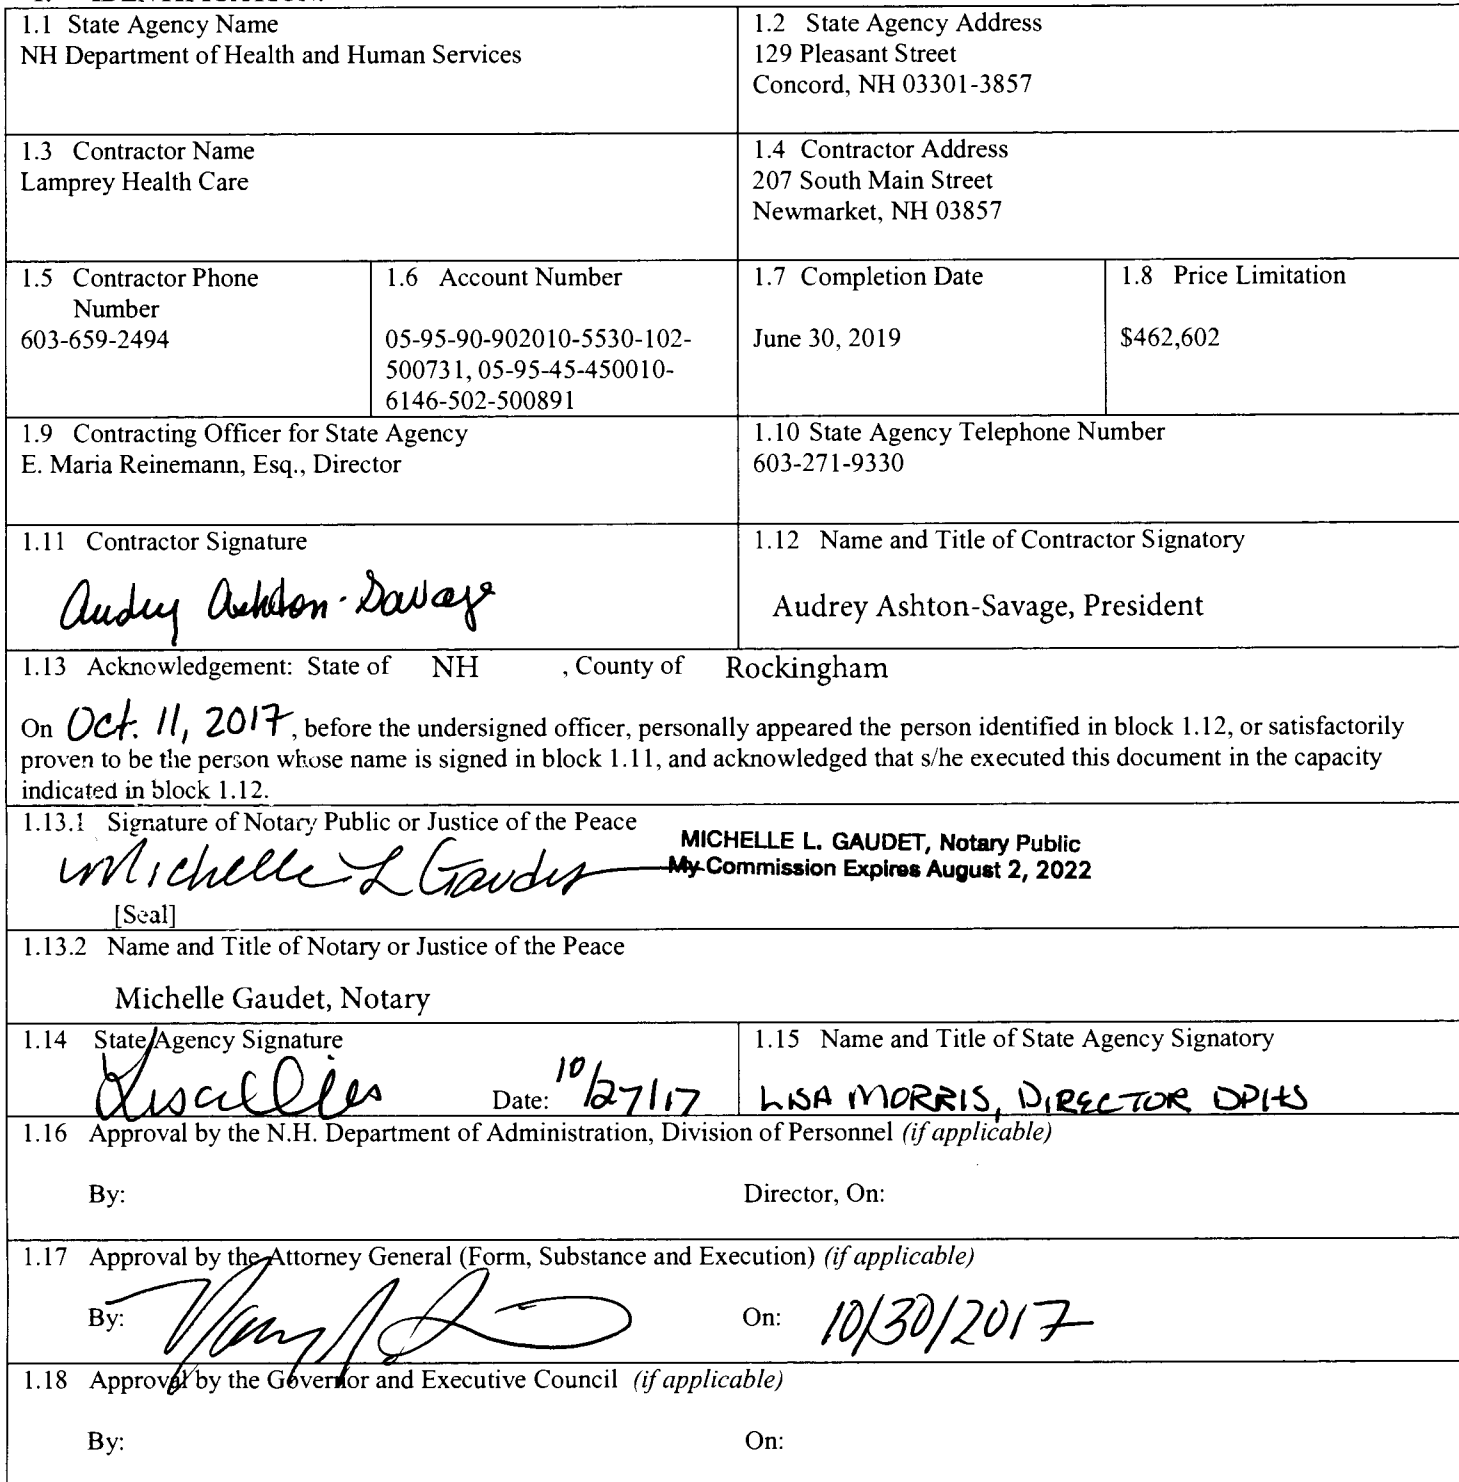 1.1 State Agency Name
NH Department of Health and Human Services
1.2 State Agency Address
129 Pleasant Street
Concord, NH 03301-3857
1.3 Contractor Name
Lamprey Health Care
1.4 Contractor Address
207 South Main Street
Newmarket, NH 03857
1.5 Contractor Phone
Number
603-659-2494
1.6 Account Number
05-95-90-902010-5530-102-
500731, 05-95-45-450010-
6146-502-500891
1.7 Completion Date
June 30, 2019
1.8 Price Limitation
$462,602
1.9 Contracting Officer for State Agency
E. Maria Reinemann, Esq., Director
1.10 State Agency Telephone Number
603-271-9330
1.11 Contractor Signature
Audrey Ashton-Savage
1.12 Name and Title of Contractor Signatory
Audrey Ashton-Savage, President
1.13 Acknowledgement: State of NH , County of Rockingham
On Oct. 11, 2017, before the undersigned officer, personally appeared the person identified in block 1.12, or satisfactorily
proven to be the person whose name is signed in block 1.11, and acknowledged that s/he executed this document in the capacity
indicated in block 1.12.
1.13.1 Signature of Notary Public or Justice of the Peace
MICHELLE L. GAUDET, Notary Public
My Commission Expires August 2, 2022
Michelle L Gaudet
[Seal]
1.13.2 Name and Title of Notary or Justice of the Peace
Michelle Gaudet, Notary
1.14 State Agency Signature
Date: 10/27/17
1.15 Name and Title of State Agency Signatory
LISA MORRIS, DIRECTOR DPHS
1.16 Approval by the N.H. Department of Administration, Division of Personnel (if applicable)
By:
Director, On:
1.17 Approval by the Attorney General (Form, Substance and Execution) (if applicable)
By:
On: 10/30/2017
1.18 Approval by the Governor and Executive Council (if applicable)
By:
On: